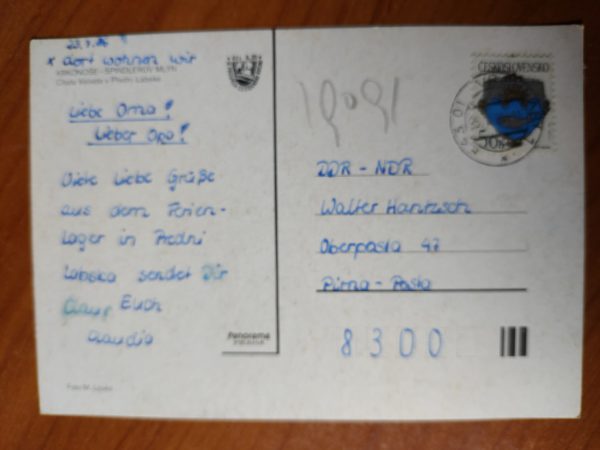 x dort wohnen wir
KRKONOŠE - ŠPINDLERŮV MLÝN
Liebe Oma!
Lieber Opa!
Viele liebe Grüße
aus dem Ferien-
lager in Přední
Labska sendet Dir
Euch
Claudia
Panorama
ČESKOSLOVENSKO
DDR - NDR
Walter Hantzsch
Oberposta 47
Pirna - Posta
8300